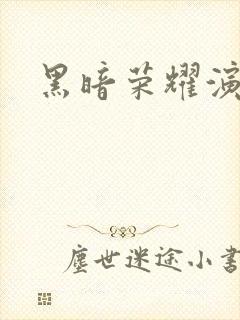 黑暗荣耀演
塵世迷途小書